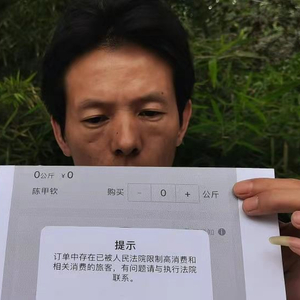 0公斤 ¥0
陈甲钦 购买 - 0 + 公斤
提示
订单中存在已被人民法院限制高消费和
相关消费的旅客，有问题请与执行法院
联系。